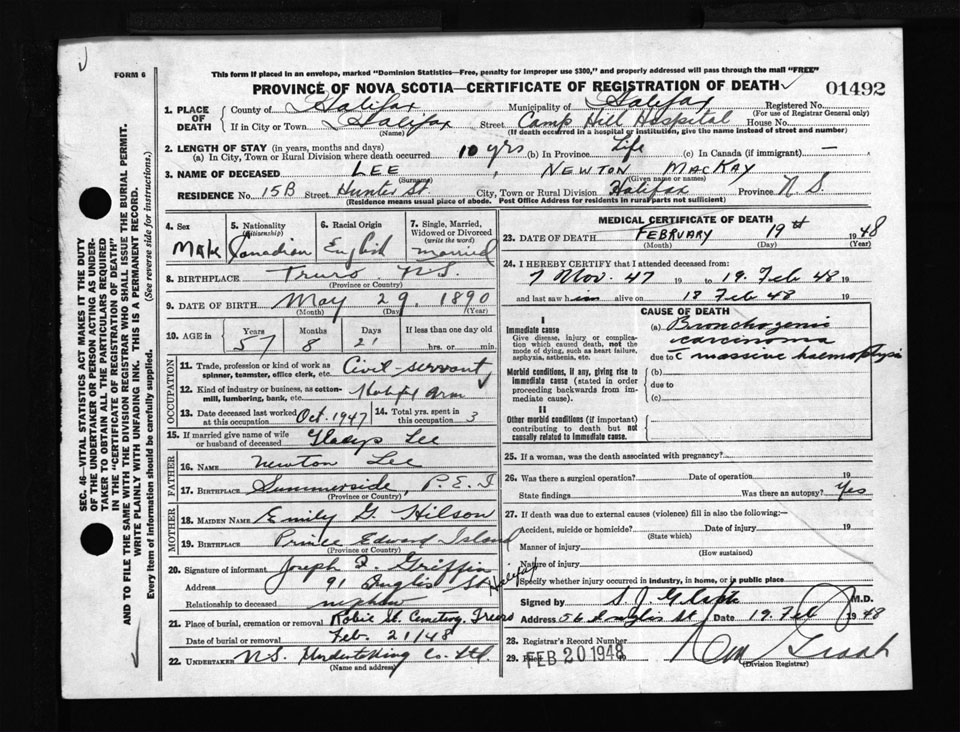 FORM 6
This form if placed in an envelope, marked "Dominion Statistics—Free, penalty for improper use $300," and properly addressed will pass through the mail "FREE"
PROVINCE OF NOVA SCOTIA—CERTIFICATE OF REGISTRATION OF DEATH
01492
1. PLACE OF DEATH
County of Halifax
Municipality of Halifax
Registered No.
(For use of Registrar General only)
If in City or Town Halifax
(Name)
Street Camp Hill Hospital House No.
(If death occurred in a hospital or institution, give the name instead of street and number)
2. LENGTH OF STAY (in years, months and days)
(a) In City, Town or Rural Division where death occurred 10 yrs (b) In Province Life (c) In Canada (if immigrant) —
3. NAME OF DECEASED LEE, NEWTON MACKAY
(Surname) (Given name or names)
RESIDENCE No. 15B Street Hunter St. City, Town or Rural Division Halifax Province N S.
(Residence means usual place of abode. Post Office Address for residents in rural parts not sufficient)
4. Sex
Male
5. Nationality (Citizenship)
Canadian
6. Racial Origin
English
7. Single, Married, Widowed or Divorced (write the word)
married
8. BIRTHPLACE Truro, N.S.
(Province or Country)
9. DATE OF BIRTH May 29, 1890
(Month) (Day) (Year)
10. AGE in
Years Months Days If less than one day old
57 8 21 hrs. or min.
OCCUPATION
11. Trade, profession or kind of work as spinner, teamster, office clerk, etc. Civil-servant
12. Kind of industry or business, as cotton-mill, lumbering, bank, etc.
13. Date deceased last worked at this occupation Oct. 1947
14. Total yrs. spent in this occupation 3
15. If married give name of wife or husband of deceased Gladys Lee
FATHER
16. NAME Newton Lee
17. BIRTHPLACE Summerside, P.E.I
(Province or Country)
MOTHER
18. MAIDEN NAME Emily G. Hilson
19. BIRTHPLACE Prince Edward Island
(Province or Country)
20. Signature of informant Joseph F. Griffin
Address 91 Inglis St Halifax
Relationship to deceased nephew
21. Place of burial, cremation or removal Robie St. Cemetery, Truro
Date of burial or removal Feb. 21/48
22. UNDERTAKER N.S. Undertaking Co. Ltd
(Name and address)
MEDICAL CERTIFICATE OF DEATH
23. DATE OF DEATH FEBRUARY 19th 1948
(Month) (Day) (Year)
24. I HEREBY CERTIFY that I attended deceased from:
7 Nov. 47 19 to 19. Feb 48 19
and last saw him alive on 18 Feb 48 19
CAUSE OF DEATH
I
Immediate cause
Give disease, injury or complication which caused death, not the mode of dying, such as heart failure, asphysia, asthenia, etc.
(a) Bronchogenic carcinoma
due to c massive haemophysis
Morbid conditions, if any, giving rise to immediate cause (stated in order proceeding backwards from immediate cause).
(b)
due to
(c)
II
Other morbid conditions (if important) contributing to death but not causally related to immediate cause.
25. If a woman, was the death associated with pregnancy?
26. Was there a surgical operation? Date of operation 19
State findings Was there an autopsy? Yes
27. If death was due to external causes (violence) fill in also the following:—
Accident, suicide or homicide? Date of injury 19
(State which)
Manner of injury
(How sustained)
Nature of injury
Specify whether injury occurred in industry, in home, or in public place
Signed by M.D.
Address 56 Inglis St Date 19. Feb 1948
28. Registrar's Record Number
29. FEB 20 1948
(Division Registrar)
SEC. 46—VITAL STATISTICS ACT MAKES IT THE DUTY OF THE UNDERTAKER OR PERSON ACTING AS UNDERTAKER TO OBTAIN ALL THE PARTICULARS REQUIRED IN THE "CERTIFICATE OF REGISTRATION OF DEATH" AND TO FILE THE SAME WITH THE DIVISION REGISTRAR WHO SHALL ISSUE THE BURIAL PERMIT.
WRITE PLAINLY WITH UNFADING INK. THIS IS A PERMANENT RECORD.
Every item of information should be carefully supplied. (See reverse side for instructions.)